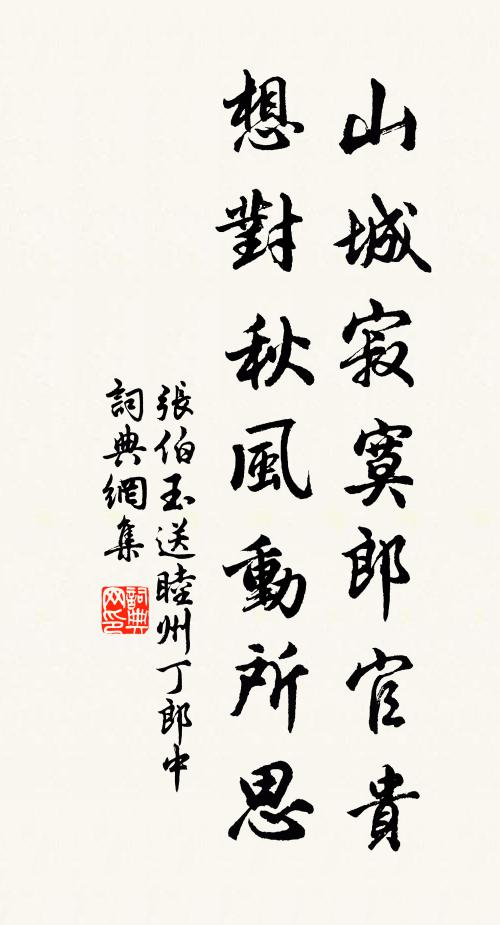 山城寂寞郎官貴
想對秋風動所思
張伯玉送睦州丁郎中
詞典網集
詞典网印